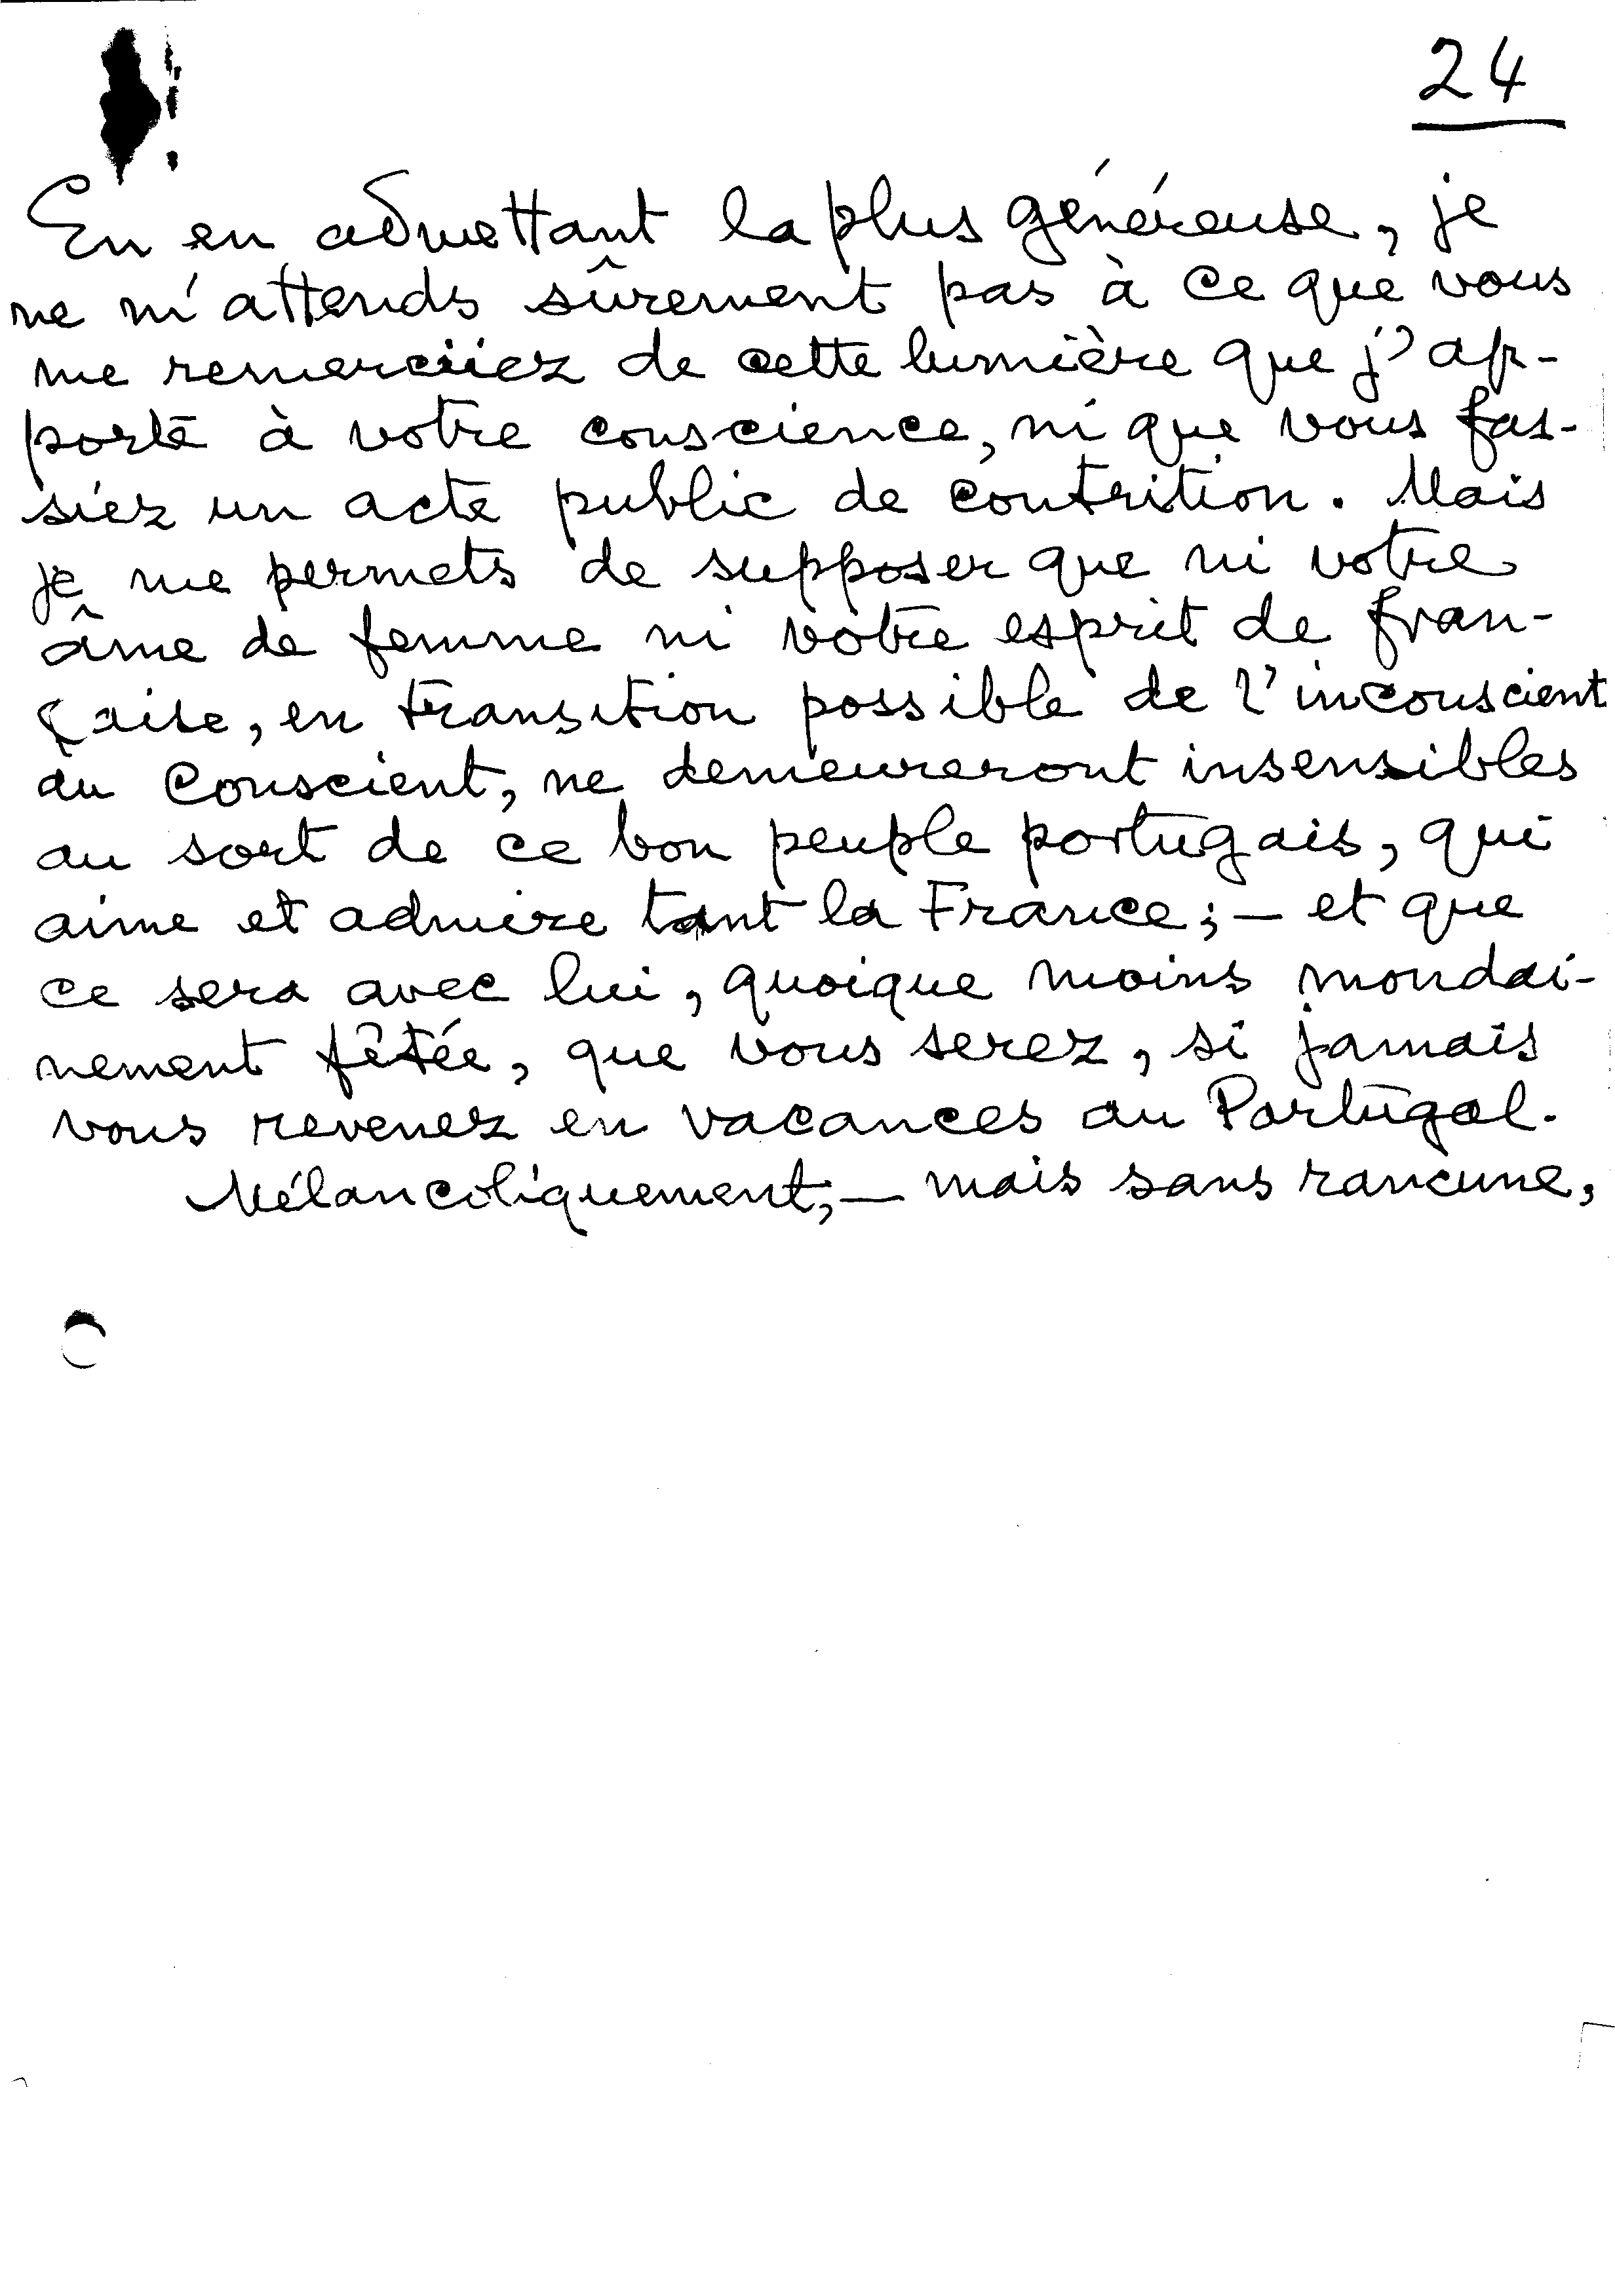 24
En en admettant la plus généreuse, je
ne m'attends sûrement pas à ce que vous
me remerciiez de cette lumière que j'ap-
porte à votre conscience, ni que vous fas-
siez un acte public de contrition. Mais
je me permets de supposer que ni votre
âme de femme ni votre esprit de fran-
çaise, en transition possible de l'inconscient
au conscient, ne demeureront insensibles
au sort de ce bon peuple portugais, qui
aime et admire tant la France; — et que
ce sera avec lui, quoique moins mondai-
nement fêtée, que vous serez, si jamais
vous revenez en vacances au Portugal.
Mélancoliquement, — mais sans rancune,